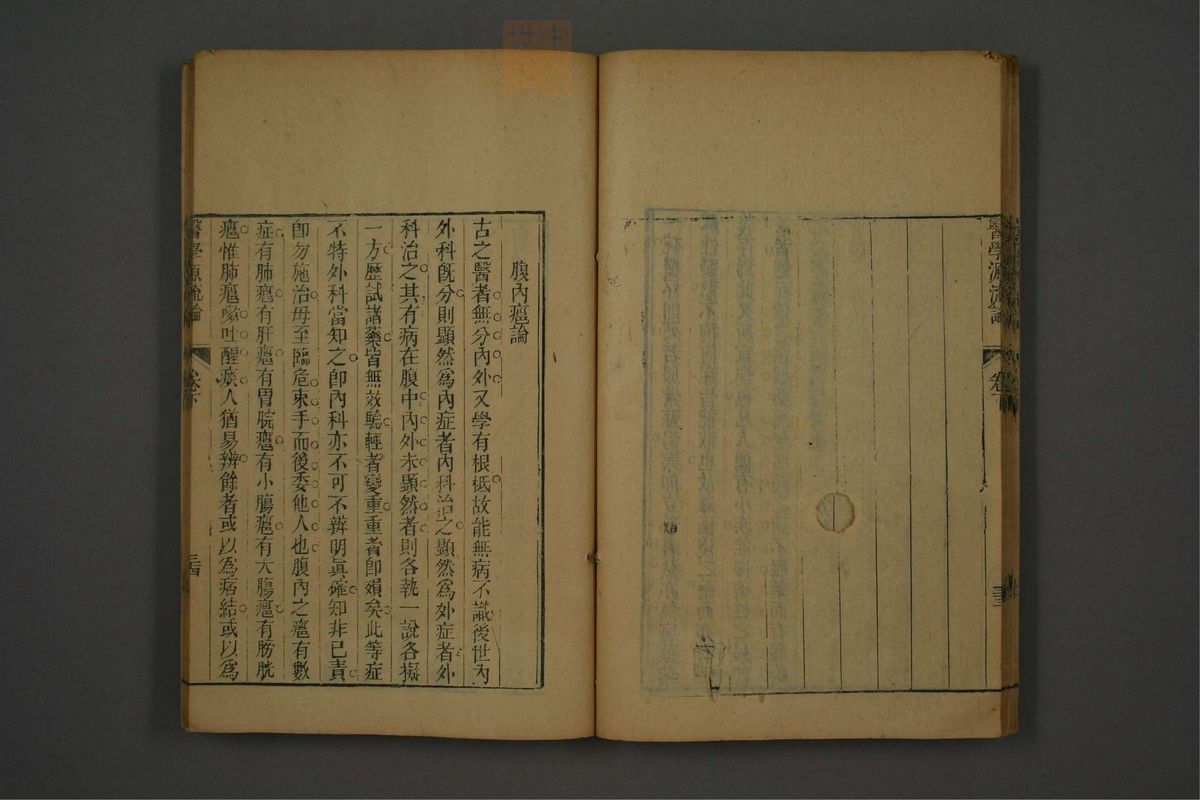 醫學源流論
卷下
三三
腹內癰論
古之醫者無分內外又學有根柢故能無病不識後世內
外科旣分則顯然爲內症者內科治之顯然爲外症者外
科治之其有病在腹中內外未顯然者則各執一說各擬
一方歷試諸藥皆無效驗輕者變重重者卽殞矣此等症
不特外科當知之卽內科亦不可不辨明眞確知非己責
卽勿施治毋至臨危束手而後委他人也腹內之癰有數
症有肺癰有肝癰有胃脘癰有小腸癰有大腸癰有膀胱
癰惟肺癰咳吐腥痰人猶易辨餘者或以爲痞結或以爲
醫學源流論
卷下
三四